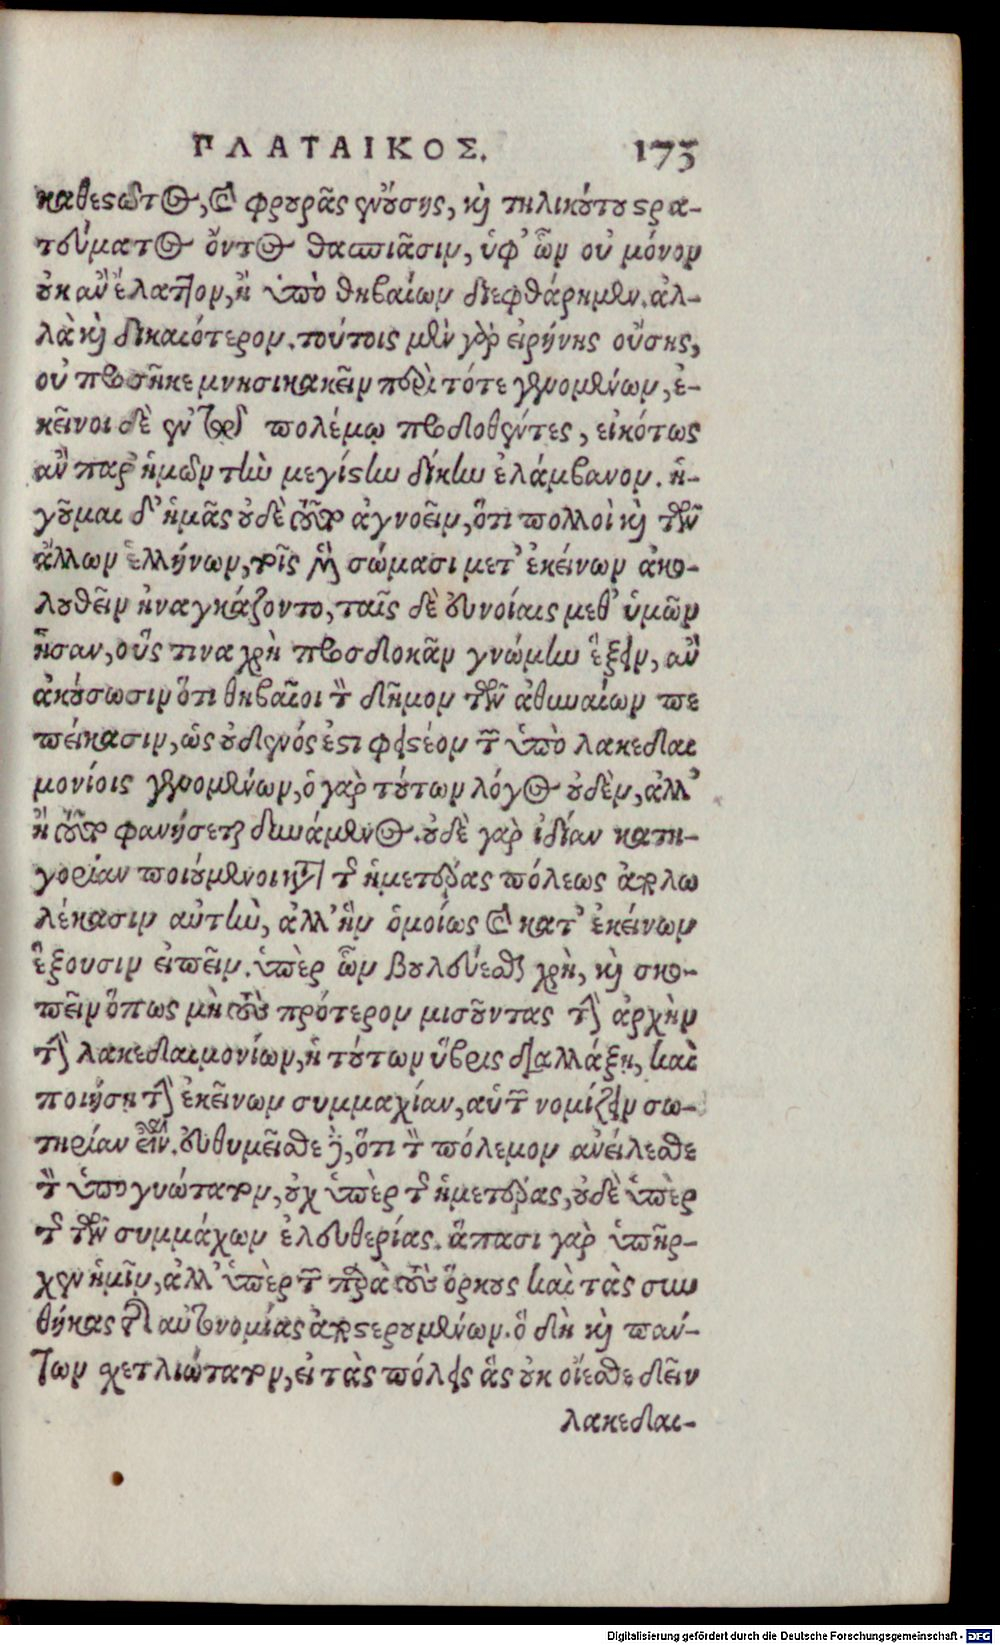 ΠΛΑΤΑΙΚΟΣ. 175
καθεστῶτος, καὶ φρουρᾶς ἐνούσης, καὶ τηλικούτου στρα-
τεύματος ὄντος θασπιᾶσιν, ὑφ' ὧν οὐ μόνον
οὐκ ἂν ἔλαττον, ἢ ὑπὸ θηβαίων διεφθάρημεν. ἀλ-
λὰ καὶ δικαιότερον. τούτοις μὲν γὰρ εἰρήνης οὔσης,
οὐ προσῆκε μνησικακεῖν περὶ τότε γενομένων, ἐ-
κεῖνοι δὲ ἐν τῷ πολέμῳ προδοθέντες, εἰκότως
ἂν παρ' ἡμῶν τὴν μεγίστην δίκην ἐλάμβανον. ἡ-
γοῦμαι δ' ἡμᾶς οὐδὲ τοῦτο ἀγνοεῖν, ὅτι πολλοὶ καὶ τῶν
ἄλλων ἑλλήνων, τοῖς μὲν σώμασι μετ' ἐκείνων ἀκο-
λουθεῖν ἠναγκάζοντο, ταῖς δὲ εὐνοίαις μεθ' ὑμῶν
ἦσαν, οὓς τινα χρὴ προσδοκᾶν γνώμην ἕξειν, ἂν
ἀκούσωσιν ὅτι θηβαῖοι τὸν δῆμον τῶν ἀθηναίων πε
πείκασιν, ὡς οὐδενός ἐστι φειστέον τῶν ὑπὸ λακεδαι
μονίοις γενομένων, ὁ γὰρ τούτων λόγος οὐδὲν, ἀλλ'
ἢ τοῦτο φανήσεται δυνάμενος. οὐδὲ γὰρ ἰδίαν κατη-
γορίαν ποιούμενοι κατὰ τῆς ἡμετέρας πόλεως ἀπολω
λέκασιν αὐτὴν, ἀλλ' ἣν ὁμοίως καὶ κατ' ἐκείνων
ἕξουσιν εἰπεῖν. ὑπὲρ ὧν βουλεύεσθαι χρὴ, καὶ σκο-
πεῖν ὅπως μὴ τοὺς πρότερον μισοῦντας τὴν ἀρχὴν
τὴν λακεδαιμονίων, ἡ τούτων ὕβρις διαλλάξῃ, καὶ
ποιήσῃ τὴν ἐκείνων συμμαχίαν, αὑτῶν νομίζειν σω-
τηρίαν εἶναι. ἐνθυμεῖσθε δὲ, ὅτι τὸν πόλεμον ἀνείλεσθε
τὸν ὑπογυώτατον, οὐχ ὑπὲρ τῆς ἡμετέρας, οὐδὲ ὑπὲρ
τῆς τῶν συμμάχων ἐλευθερίας. ἅπασι γὰρ ὑπῆρ-
χεν ἡμῖν, ἀλλ' ὑπὲρ τῶν παρὰ τοὺς ὅρκους καὶ τὰς συν
θήκας τῆς αὐτονομίας ἀποστερουμένων. ὃ δὴ καὶ πάν-
των σχετλιώτατον, εἰ τὰς πόλεις ἃς οὐκ οἴεσθε δεῖν
λακεδαι-
Digitalisierung gefördert durch die Deutsche Forschungsgemeinschaft - DFG